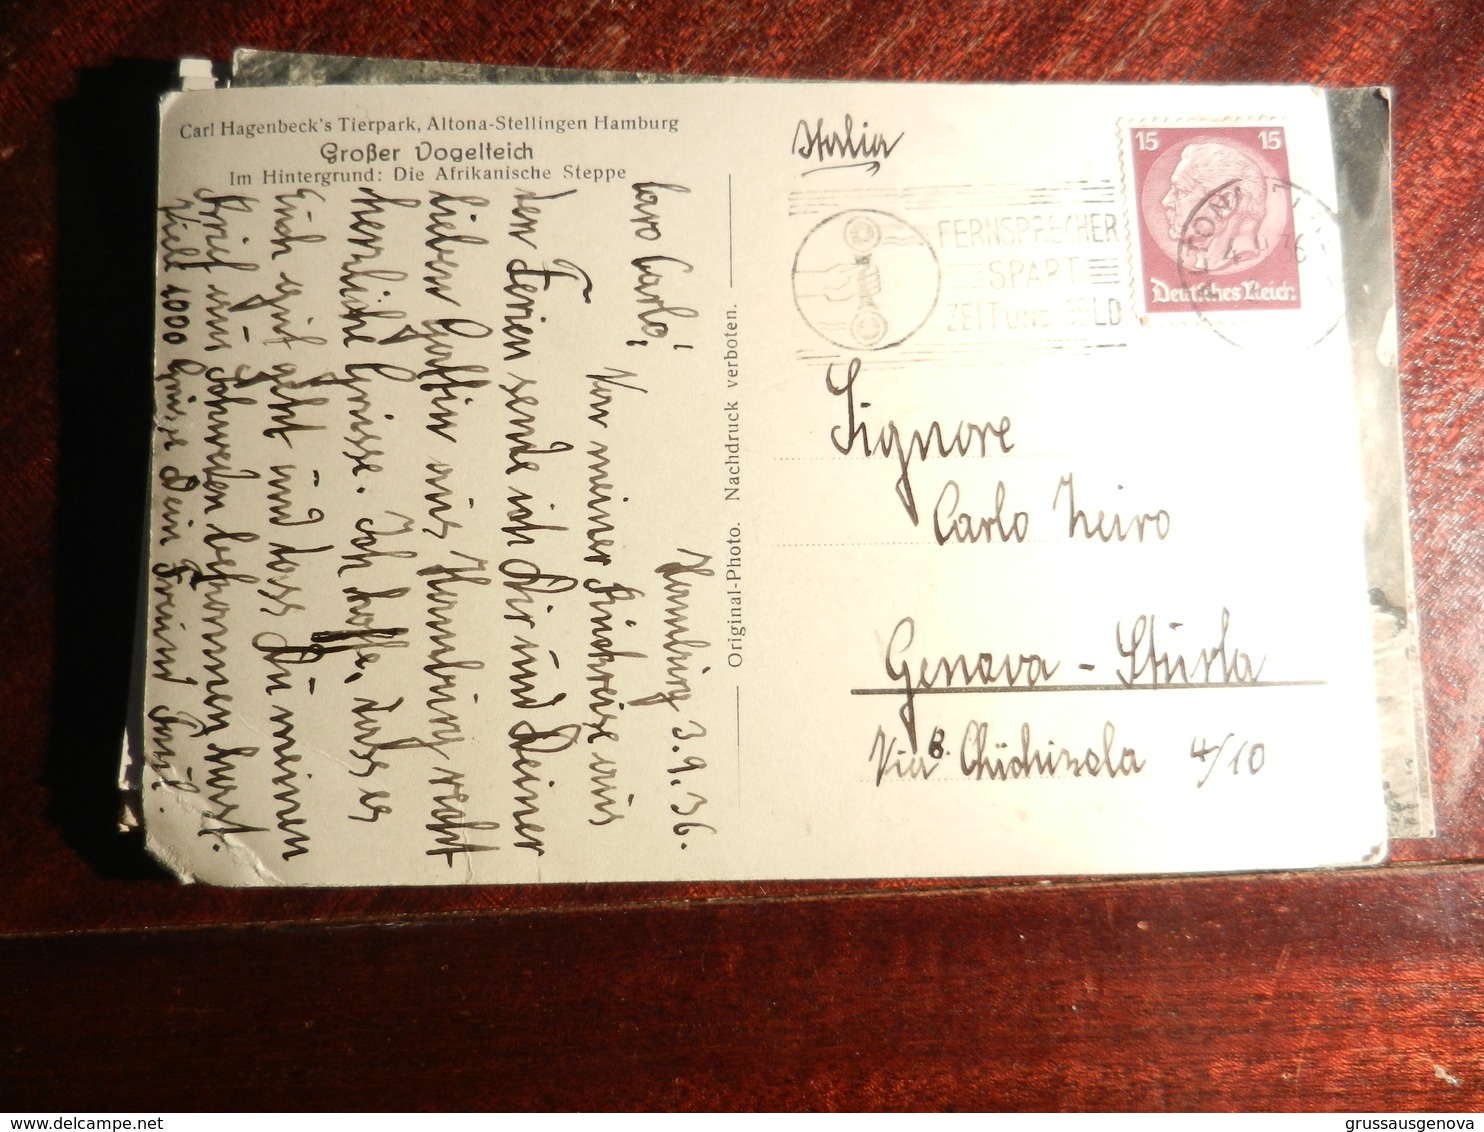 Carl Hagenbeck's Tierpark, Altona-Stellingen Hamburg
Großer Vogelteich
Im Hintergrund: Die Afrikanische Steppe
Hamburg 3.9.36.
Caro Carlo!
Von meiner Rückreise aus
den Ferien sende ich Dir und Deiner
lieben Gattin aus Hamburg recht
herzliche Grüsse. Ich hoffe, dass es
Euch gut geht und dass Du meinen
Brief aus Schweden bekommen hast.
Viele 1000 Grüsse Dein Freund
Original-Photo. Nachdruck verboten.
Italia
15 15
Deutsches Reich
FERNSPRECHER
SPART
ZEIT UND GELD
ALTONA
4 9 36
Signore
Carlo Neiro
Genova - Sturla
Via B. Chichizola 4/10
grussausgenova